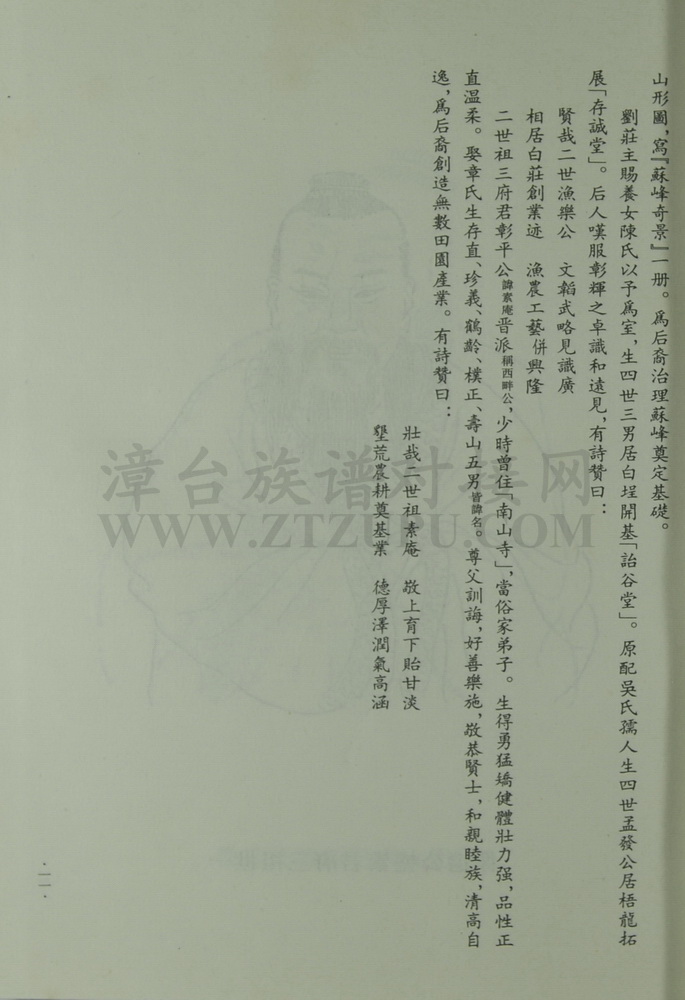 山形圖，寫『蘇峰奇景』一册。爲后裔治理蘇峰奠定基礎。
劉莊主賜養女陳氏以予爲室，生四世三男居白埕開基「詒谷堂」。原配吳氏孺人生四世孟發公居梧龍拓
展「存誠堂」。后人嘆服彰輝之卓識和遠見，有詩贊曰：
賢哉二世漁樂公　文韜武略見識廣
相居白莊創業迹　漁農工藝併興隆
二世祖三府君彰平公諱素庵晋派稱西畔公，少時曾住「南山寺」，當俗家弟子。生得勇猛矯健體壯力强，品性正
直温柔。娶章氏生存直、珍義、鶴齡、樸正、壽山五男皆諱名。尊父訓誨，好善樂施，敬恭賢士，和親睦族，清高自
逸，爲后裔創造無數田園産業。有詩贊曰：
壯哉二世祖素庵　敬上育下貽甘淡
墾荒農耕奠基業　德厚澤潤氣高涵
·二·
漳台族谱对接网
WWW.ZTZUPU.COM